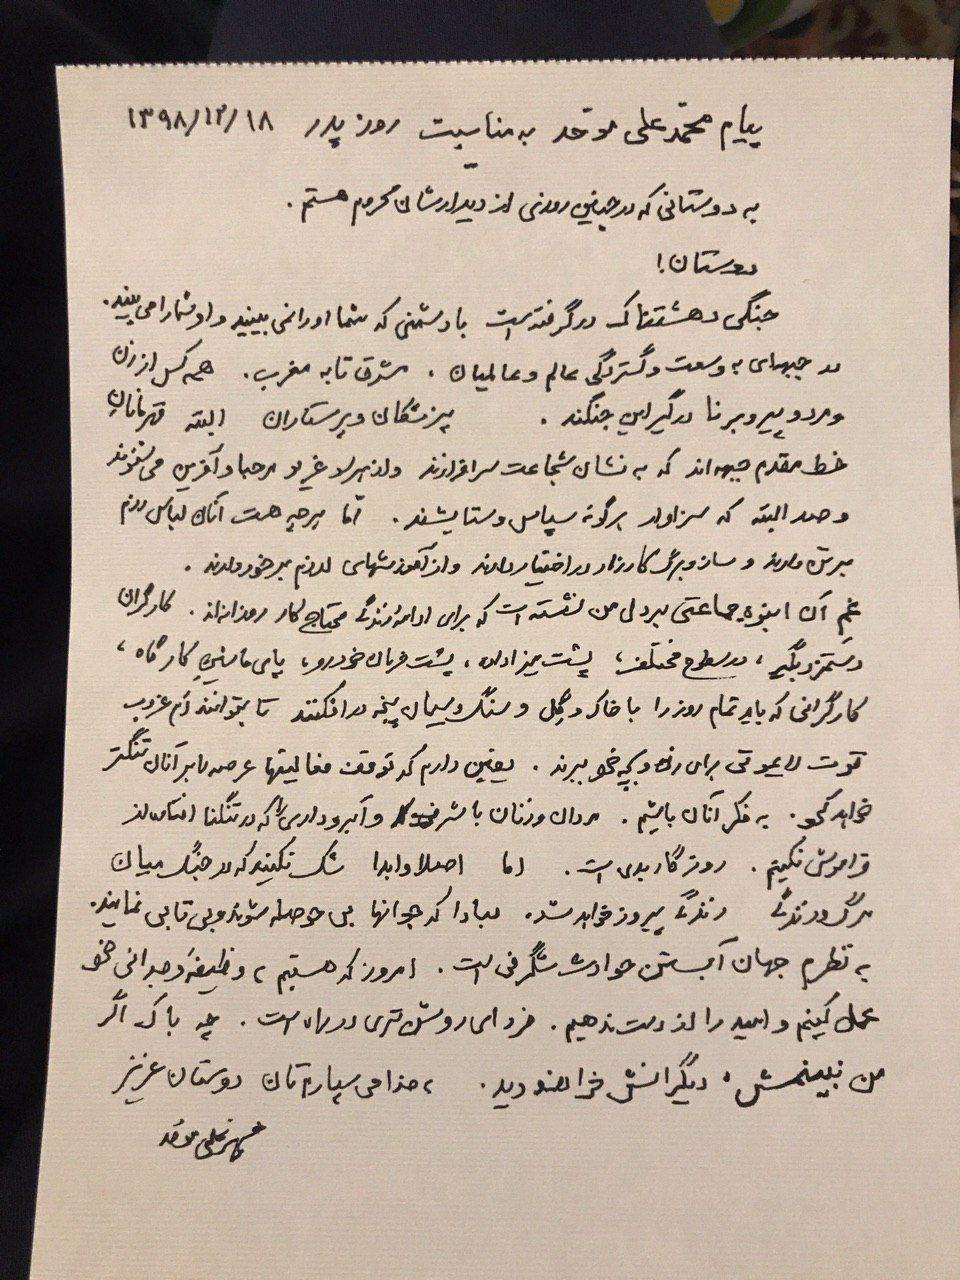 پیام محمدعلی موحد به مناسبت روز پدر ۱۳۹۸/۱۲/۱۸
به دوستانی که در چنین روزی از دیدارشان محروم هستم.
دوستان!
جنگی دهشتناک درگرفته‌ست با دشمنی که شما او را نمی‌بینید و او شما را می‌بیند.
در جبهه‌ای به وسعت و گستردگی عالم و عالمیان. مشرق تا به مغرب. همه کس از زن
و مرد و پیر و برنا درگیر این جنگند. پزشکان و پرستاران البته قهرمانانِ
خط مقدم جبهه‌اند که به نشان شجاعت سرافرازند و از هر سو غریو مرحبا و آفرین می‌شنوند
و صد البته که سزاوار هرگونه سپاس و ستایشند. امّا هرچه هست آنان لباس رزم
بر تن دارند و ساز و برگ کارزار در اختیار دارند و از آموزشهای لازم برخوردارند.
غمِ آن انبوهِ جماعتی بر دل من نشسته است که برای ادامهٔ زندگی محتاج کار روزانه‌اند. کارگران
دستمزدبگیر، در سطوح مختلف، پشت میز اداره، پشت فرمان خودرو، پای ماشینِ کارگاه،
کارگرانی که باید تمام روز را با خاک و گِل و سنگ و سیمان پنجه درافکنند تا بتوانند دم غروب
قوت لایموتی برای زن و بچه خود ببرند. یقین دارم که توقف فعالیتها عرصه را بر آنان تنگتر
خواهد کرد. به فکر آنان باشیم. مردان و زنان با شرف و آبروداری را که در تنگنا افتاده‌اند
فراموش نکنیم. روزگار بدی است. اما اصلا و ابدا شک نکنید که در جنگ میان
مرگ و زندگی زندگی پیروز خواهد شد. مبادا که جوانها بی حوصله شوند و بی‌تابی نمایند.
به نظرم جهان آبستن حوادث شگرفی است. امروز که هستیم، وظیفهٔ وجدانی خود
عمل کنیم و امید را از دست ندهیم. فردای روشن‌تری در راه است. چه باک اگر
من نبینمش، دیگرانش خواهند دید. خدا می‌سپارمتان دوستان عزیز
محمدعلی موحد